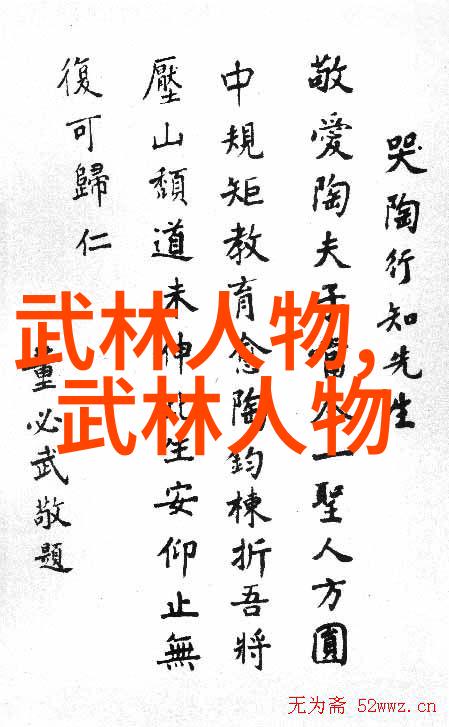 哭陶行知先生
敬愛陶夫子當今一聖人方圓
中規矩教育愈陶鈞棟折吾將
壓山頹道未伸此生安仰止無
復可歸仁
董必武敬題
武林人物,
武林人物
无为斋 52wwz.cn